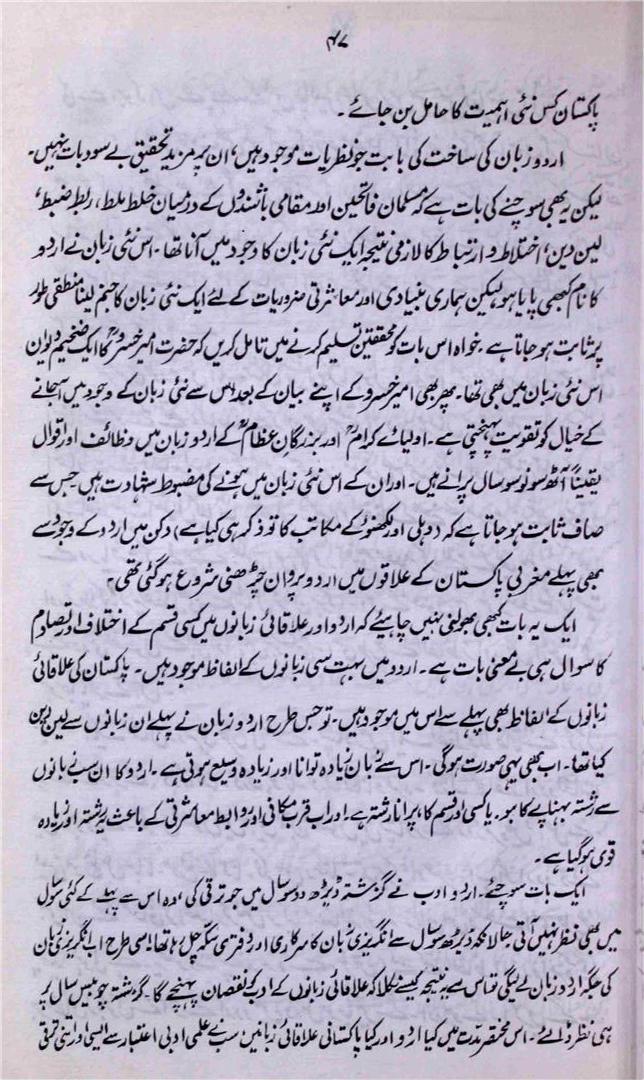 ۴۷
پاکستان کس نئی اہمیت کا حامل بن جائے ۔
اردو زبان کی ساخت کی بابت جو نظریات موجود ہیں، ان پر مزید تحقیق بے سود بات نہیں۔
لیکن یہ بھی سوچنے کی بات ہے کہ مسلمان فاتحین اور مقامی باشندوں کے درمیان خلط ملط، ربط ضبط،
لین دین، اختلاط و ارتباط کا لازمی نتیجہ ایک نئی زبان کا وجود میں آنا تھا ۔ اس نئی زبان نے اردو
کا نام کبھی پایا ہو لیکن ہماری بنیادی اور معاشرتی ضروریات کے لئے ایک نئی زبان کا جنم لینا منطقی طور
پر ثابت ہو جاتا ہے ۔ خواہ اس بات کو محققین تسلیم کرنے میں تامل کریں کہ حضرت امیر خسروؒ کا ایک ضخیم دیوان
اس نئی زبان میں بھی تھا۔ پھر بھی امیر خسرو کے اپنے بیان کے بعد اس سے نئی زبان کے وجود میں آجانے
کے خیال کو تقویت پہنچتی ہے ۔ اولیائے کرامؒ اور بزرگانِ عظامؒ کے اردو زبان میں وظائف اور اقوال
یقیناً آٹھ سو نو سو سال پرانے ہیں ۔ اور ان کے اس نئی زبان میں ہونے کی مضبوط شہادت ہیں جس سے
صاف ثابت ہو جاتا ہے کہ (دہلی اور لکھنؤ کے مکاتب کا تو ذکر ہی کیا ہے) دکن میں اردو کے وجود سے
بھی پہلے مغربی پاکستان کے علاقوں میں اردو پروان چڑھنی شروع ہو گئی تھی ۔
ایک یہ بات کبھی بھولنی نہیں چاہیئے کہ اردو اور علاقائی زبانوں میں کسی قسم کے اختلاف اور تصادم
کا سوال ہی بے معنی بات ہے ۔ اردو میں بہت سی زبانوں کے الفاظ موجود ہیں ۔ پاکستان کی علاقائی
زبانوں کے الفاظ بھی پہلے سے اس میں موجود ہیں ۔ تو جس طرح اردو زبان نے پہلے ان زبانوں سے لین دین
کیا تھا ۔ اب بھی یہی صورت ہوگی ۔ اس سے زبان زیادہ توانا اور زیادہ وسیع ہوتی ہے ۔ اردو کا ان سب زبانوں
سے رشتہ بہناپے کا ہو ۔ یا کسی اور قسم کا، پرانا رشتہ ہے ۔ اور اب قرب مکانی اور روابط معاشرتی کے باعث یہ رشتہ اور زیادہ
قوی ہو گیا ہے ۔
ایک بات سوچئے ۔ اردو ادب نے گزشتہ ڈیڑھ دو سو سال میں جو ترقی کی، وہ اس سے پہلے کے کئی سو سال
میں بھی نظر نہیں آتی حالانکہ ڈیڑھ سو سال سے انگریزی زبان کا سرکاری اور دفتری سکہ چل رہا تھا۔ اسی طرح اب انگریزی زبان
کی جگہ اردو زبان لے لیگی تو اس سے یہ نتیجہ کیسے نکلا کہ علاقائی زبانوں کے ادب کو نقصان پہنچے گا ۔ گزشتہ چوبیس سال پر
ہی نظر ڈالئے ۔ اس مختصر مدت میں کیا اردو اور کیا پاکستانی علاقائی زبانیں سب نے علمی ادبی اعتبار سے ایسی اور اتنی ترقی